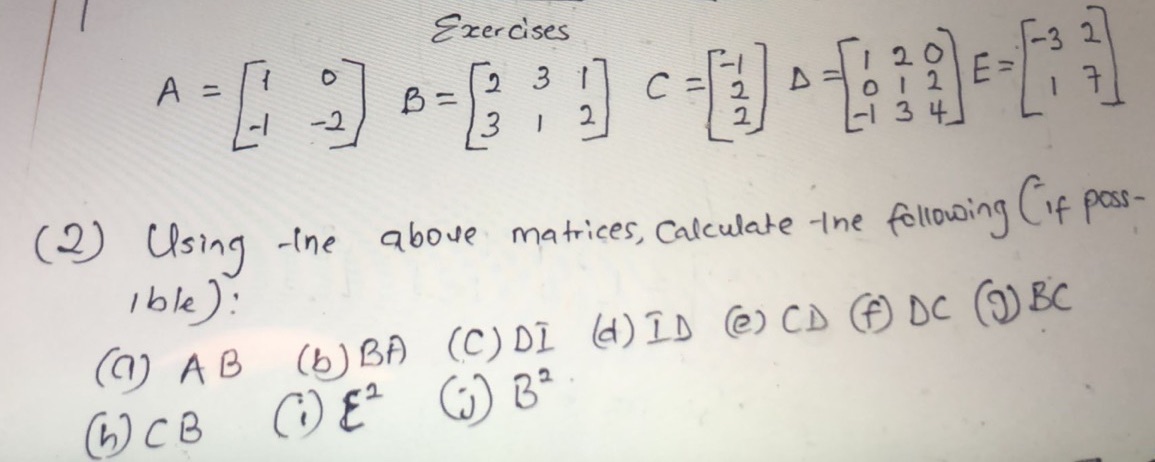 Exercises
A = [1 0; -1 -2] B = [2 3 1; 3 1 2] C = [-1; 2; 2] D = [1 2 0; 0 1 2; -1 3 4] E = [-3 2; 1 7]
(2) Using the above matrices, Calculate the following (if poss-
ible):
(a) AB (b) BA (c) DI (d) ID (e) CD (f) DC (g) BC
(h) CB (i) E² (j) B²